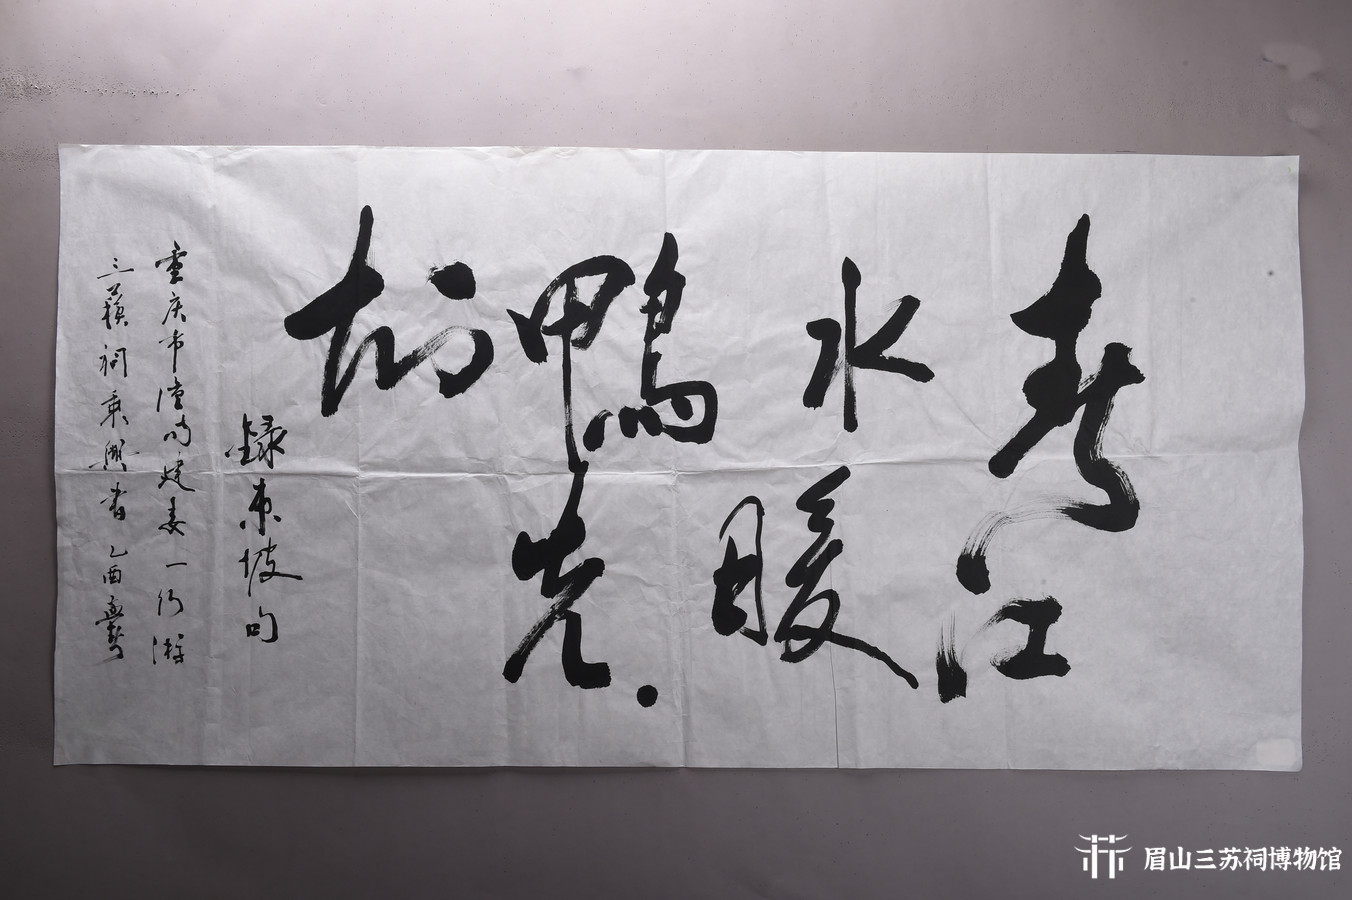 春江
水暖
鴨先
知
録东坡句
重庆市潼南建委一行游
三蘇祠乘興書 乙酉
眉山三苏祠博物馆